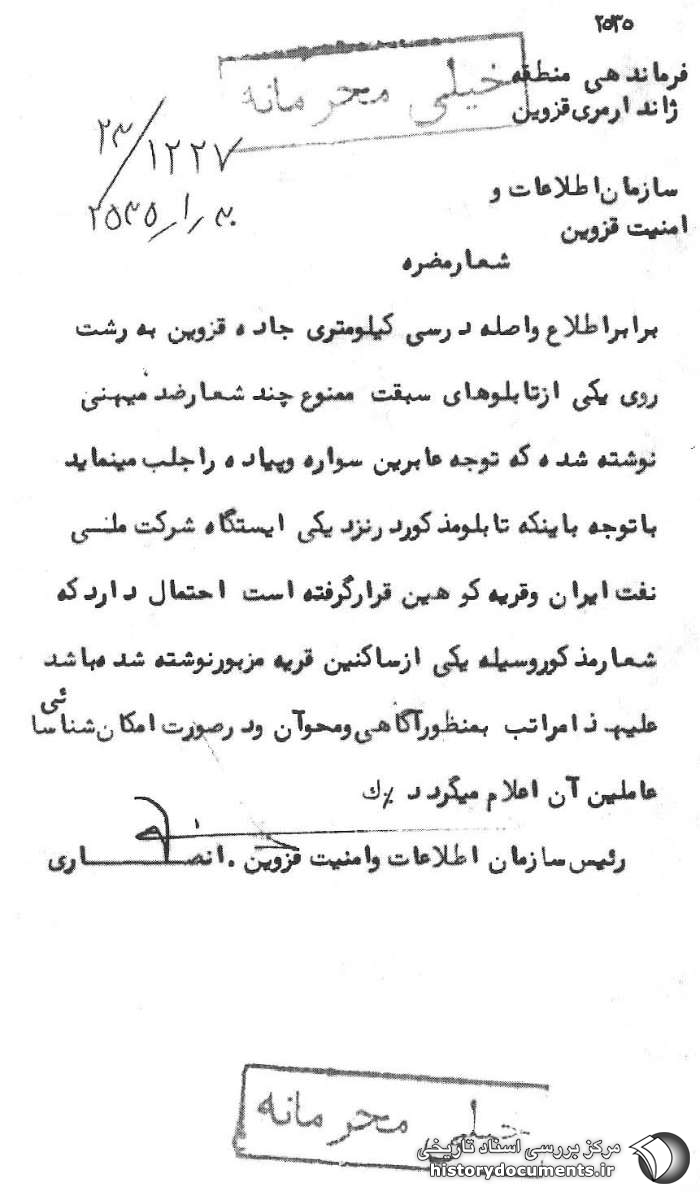 ۲۵۳۵
خیلی محرمانه
فرماندهی منطقه
ژاندارمری قزوین
۲۳/۱۲۲۷
۲۵۳۵/۱/۳۰
سازمان اطلاعات و
امنیت قزوین
شعار مضره
برابر اطلاع واصله در سی کیلومتری جاده قزوین به رشت
روی یکی از تابلوهای سبقت ممنوع چند شعار ضد میهنی
نوشته شده که توجه عابرین سواره و پیاده را جلب مینماید
با توجه باینکه تابلو مذکور در نزدیکی ایستگاه شرکت ملی
نفت ایران و قریه کوهین قرار گرفته است احتمال دارد که
شعار مذکور وسیله یکی از ساکنین قریه مزبور نوشته شده باشد
علیهذا مراتب بمنظور آگاهی و محو آن و در صورت امکان شناسائی
عاملین آن اعلام میگردد ٪ك
رئیس سازمان اطلاعات و امنیت قزوین . انصاری
خیلی محرمانه
مرکز بررسی اسناد تاریخی
historydocuments.ir